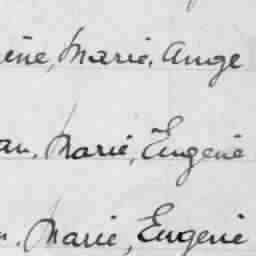 ène, Marie, Ange
an, Marie, Eugène
n, Marie, Eugène